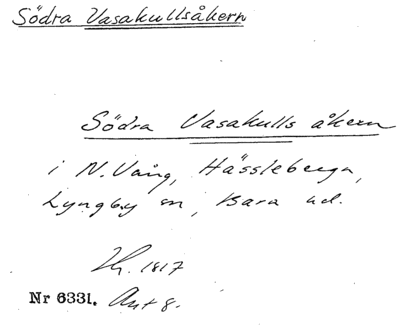 Södra Vasakullsåkern
Södra Vasakulls åkern
i N. Vång, Hässleberga,
Lyngby sn, Bara hd.
1817
Nr 6331. Akt 8.